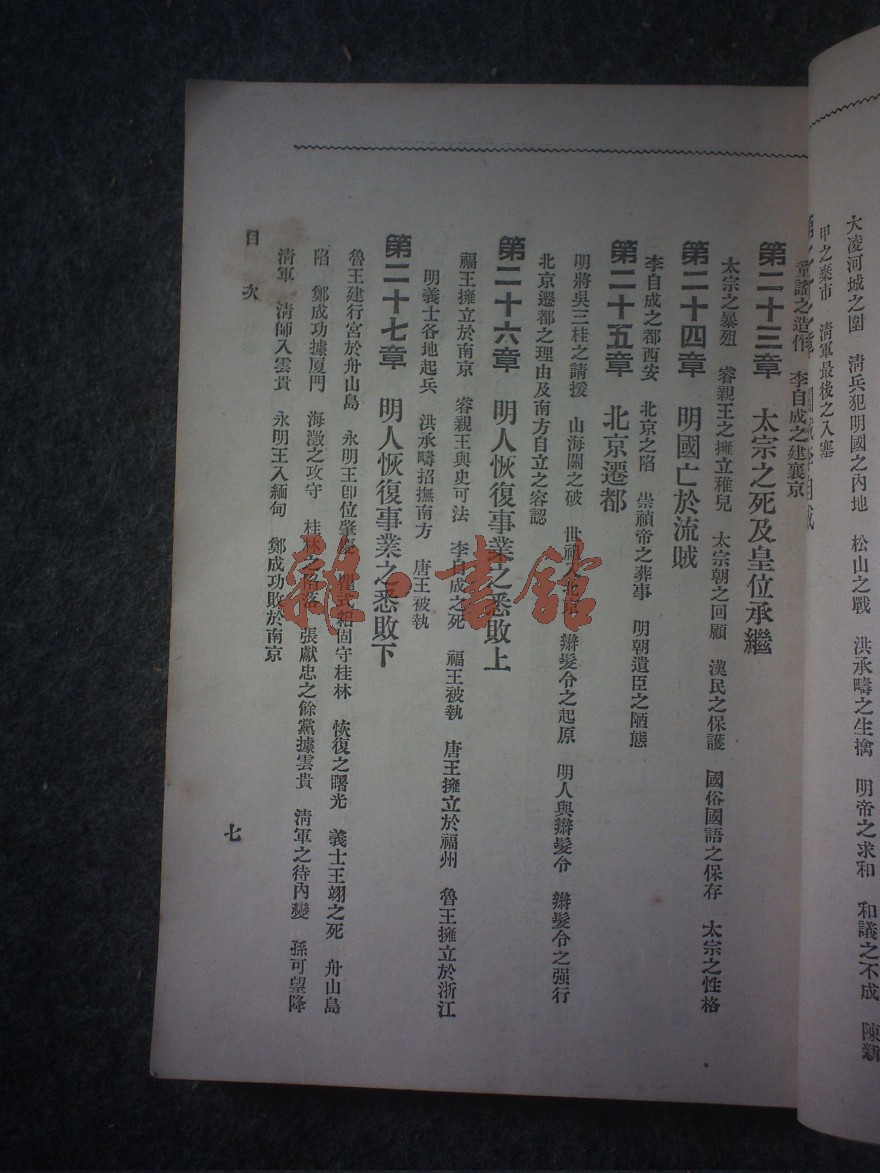 大凌河城之圍　清兵犯明國之內地　松山之戰　洪承疇之生擒　明帝之求和　和議之不成　陳新
甲之棄市　清軍最後之入塞
童謠之造作　李自成之建襄京
第二十三章　太宗之死及皇位承繼
太宗之暴殂　睿親王之擁立稚兒　太宗朝之回顧　漢民之保護　國俗國語之保存　太宗之性格
第二十四章　明國亡於流賊
李自成之都西安　北京之陷　崇禎帝之葬事　明朝遺臣之陋態
第二十五章　北京遷都
明將吳三桂之請援　山海關之破　世祖入北京　辮髮令之起原　明人與辮髮令　辮髮令之强行
北京遷都之理由及南方自立之容認
第二十六章　明人恢復事業之悉敗上
福王擁立於南京　睿親王與史可法　李自成之死　福王被執　唐王擁立於福州　魯王擁立於浙江
明義士各地起兵　洪承疇招撫南方　唐王被執
第二十七章　明人恢復事業之悉敗下
魯王建行宮於舟山島　永明王卽位肇慶　瞿式耜固守桂林　恢復之曙光　義士王翊之死　舟山島
陷　鄭成功據厦門　海澂之攻守　桂林之陷落　張獻忠之餘黨據雲貴　清軍之待內變　孫可望降
清軍　清師入雲貴　永明王入緬甸　鄭成功敗於南京
目次
七
雜·書館